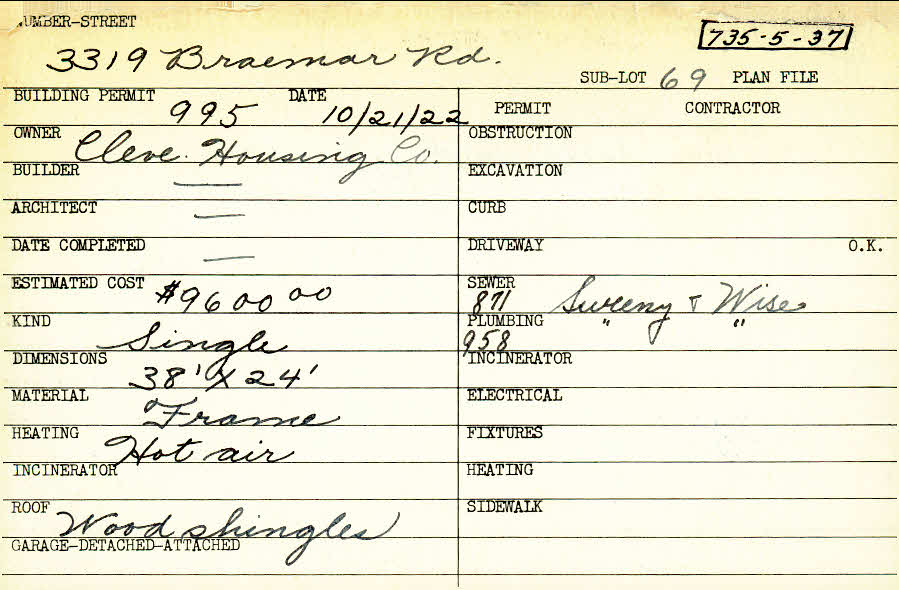 NUMBER-STREET
3319 Braemar Rd.
735-5-37
SUB-LOT 69 PLAN FILE
BUILDING PERMIT 995 DATE 10/21/22
PERMIT CONTRACTOR
OWNER Cleve. Housing Co.
OBSTRUCTION
BUILDER —
EXCAVATION
ARCHITECT —
CURB
DATE COMPLETED —
DRIVEWAY O.K.
ESTIMATED COST $9600 00
SEWER 871 Sweeny & Wise
KIND Single
PLUMBING 958 " "
DIMENSIONS 38' X 24'
INCINERATOR
MATERIAL Frame
ELECTRICAL
HEATING Hot air
FIXTURES
INCINERATOR
HEATING
ROOF Wood shingles
SIDEWALK
GARAGE-DETACHED-ATTACHED